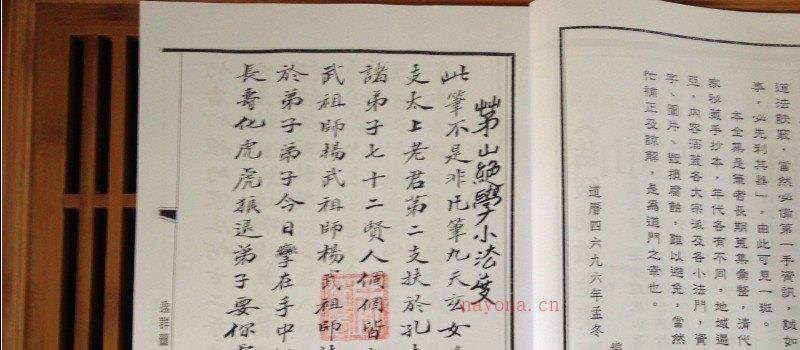 道法訣竅，當然必備第一手資訊，誠如
事，必先利其器」，由此可見一斑。
本全集是筆者長期蒐集彙整，清代
家祕藏手抄本，年代各有不同，地域遍
亞，內容涵蓋各大宗派及各小法門，資
字、圖片、毀損腐蝕，難以避免，當然
忙補正及諒解，是為道門之幸也。
道曆四六九六年孟冬
茅山絕學小法廋
此筆不是非凡筆九天玄女
支太上老君第二支扶於孔
諸弟子七十二賢人個個皆
武祖師楊武祖師楊武祖師
於弟子弟子今日拏在手中
長哥化虎虎狼送弟子要你
nayona.cn